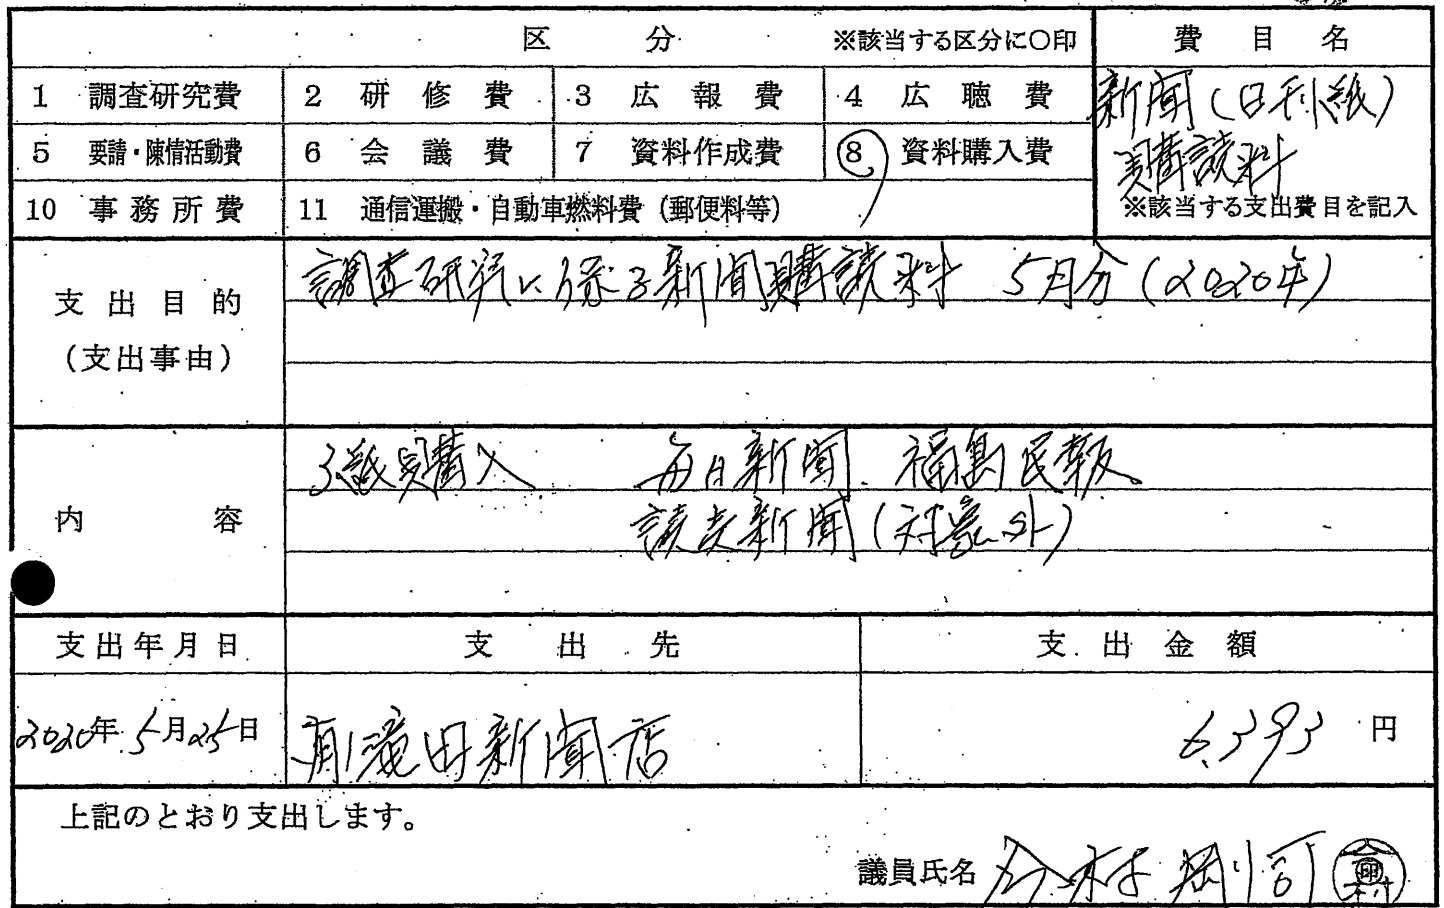 区 分 ※該当する区分に○印 費目名
1 調査研究費 2 研修費 3 広報費 4 広聴費
新聞(日刊紙)
5 要請・陳情活動費 6 会議費 7 資料作成費 8 資料購入費
購読料
10 事務所費 11 通信運搬・自動車燃料費(郵便料等)
※該当する支出費目を記入
支出目的
(支出事由)
調査研究に係る新聞購読料 5月分(2020年)
内容
3紙購入 毎日新聞、福島民報
読売新聞(対象外)
支出年月日 支出先 支出金額
2020年5月25日 滝田新聞店 6,393円
上記のとおり支出します。
議員氏名 今村剛司